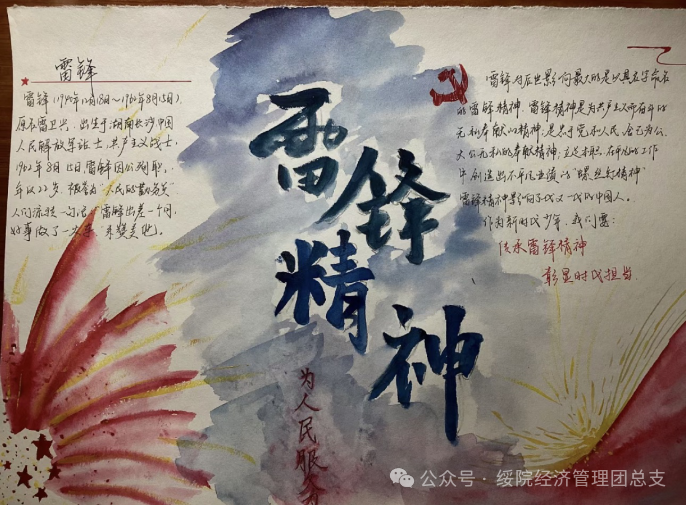 雷锋
雷锋（1940年12月18日～1962年8月15日）
原名雷正兴，出生于湖南长沙中国
人民解放军战士，共产主义战士，
1962年8月15日，雷锋因公殉职，
年仅22岁，被誉为“人民的勤务员”
人们流传一句话：“雷锋出差一千里
好事做了一火车”
雷锋
精神
为人民服务
雷锋对后世影响最大的是以其名字命名
的雷锋精神，雷锋精神是为共产主义而奋斗的
无私奉献的精神，是忠于党和人民，舍己为公，
大公无私的奉献精神，立足本职，在平凡的工作
中创造出不平凡业绩的“螺丝钉精神”
雷锋精神影响了一代又一代的中国人。
作为新时代少年，我们应：
传承雷锋精神
彰显时代担当
公众号·绥院经济管理团总支